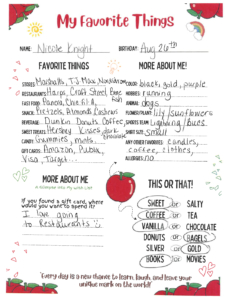 My Favorite Things
NAME: Nicole Knight BIRTHDAY: Aug 26th
FAVORITE THINGS
MORE ABOUT ME!
STORES: Marshalls, TJ Maxx, Nordstrom
COLOR: black, gold, purple
RESTAURANTS: Harps, Crab Street
HOBBIES: running
FAST FOOD: Panera, Chic fil A,
ANIMAL: dogs
SNACK: Pretzels, Almonds, Cashews
FLOWER/PLANT: lily/sunflowers
BEVERAGE: Dunkin Donuts Coffee
SPORTS TEAM: Lightning/bucs
SWEET TREATS: Hershey Kisses dark chocolate
SHIRT SIZE: Small
CANDY: Gummies, mints
ANY OTHER FAVORITES: candles, coffee, clothes,
GIFT CARDS: Amazon, Publix, Visa, Target...
ALLERGIES: no
MORE ABOUT ME
If you found a gift card, where would you want to spend it?
I love going to Restaurants
THIS OR THAT!
SWEET or SALTY
COFFEE or TEA
VANILLA or CHOCOLATE
DONUTS or BAGELS
SILVER or GOLD
BOOKS or MOVIES
"Every day is a new chance to learn, laugh, and leave your unique mark on the world!"